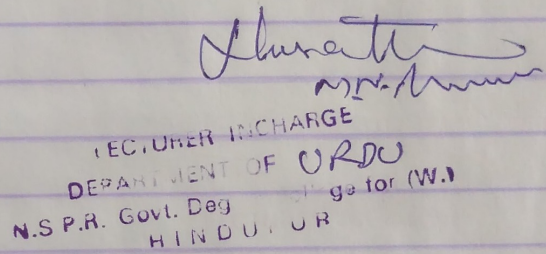 LECTURER INCHARGE
DEPARTMENT OF URDU
N.S P.R. Govt. Deg ge for (W.)
HINDUPUR